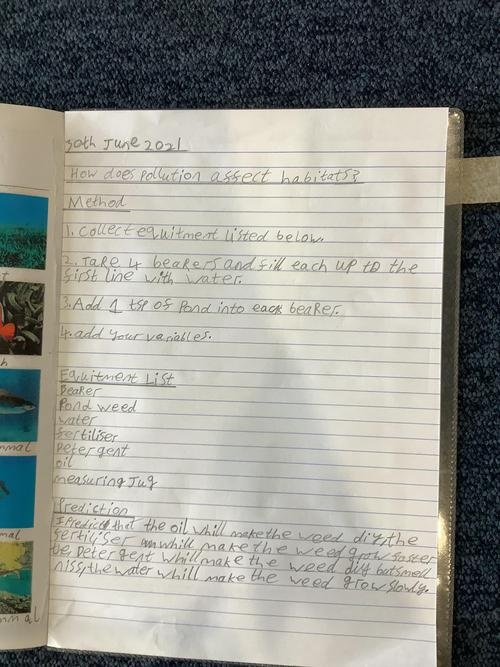 30th June 2021
How does pollution affect habitats?
Method
1. Collect equitment listed below.
2. Take 4 beakers and fill each up to the
first line with water.
3. Add 1 tsp of Pond into each beaker.
4. add your variables.
Equitment List
Beaker
Pond weed
water
fertiliser
Detergent
oil
measuring Jug
Prediction
I Predict that the oil whill make the weed diy, the
fertiliser whill make the weed grow faster
the Detergent whill make the weed diy but smell
niss, the water whill make the weed grow slowly.
mmal
mal
mmal